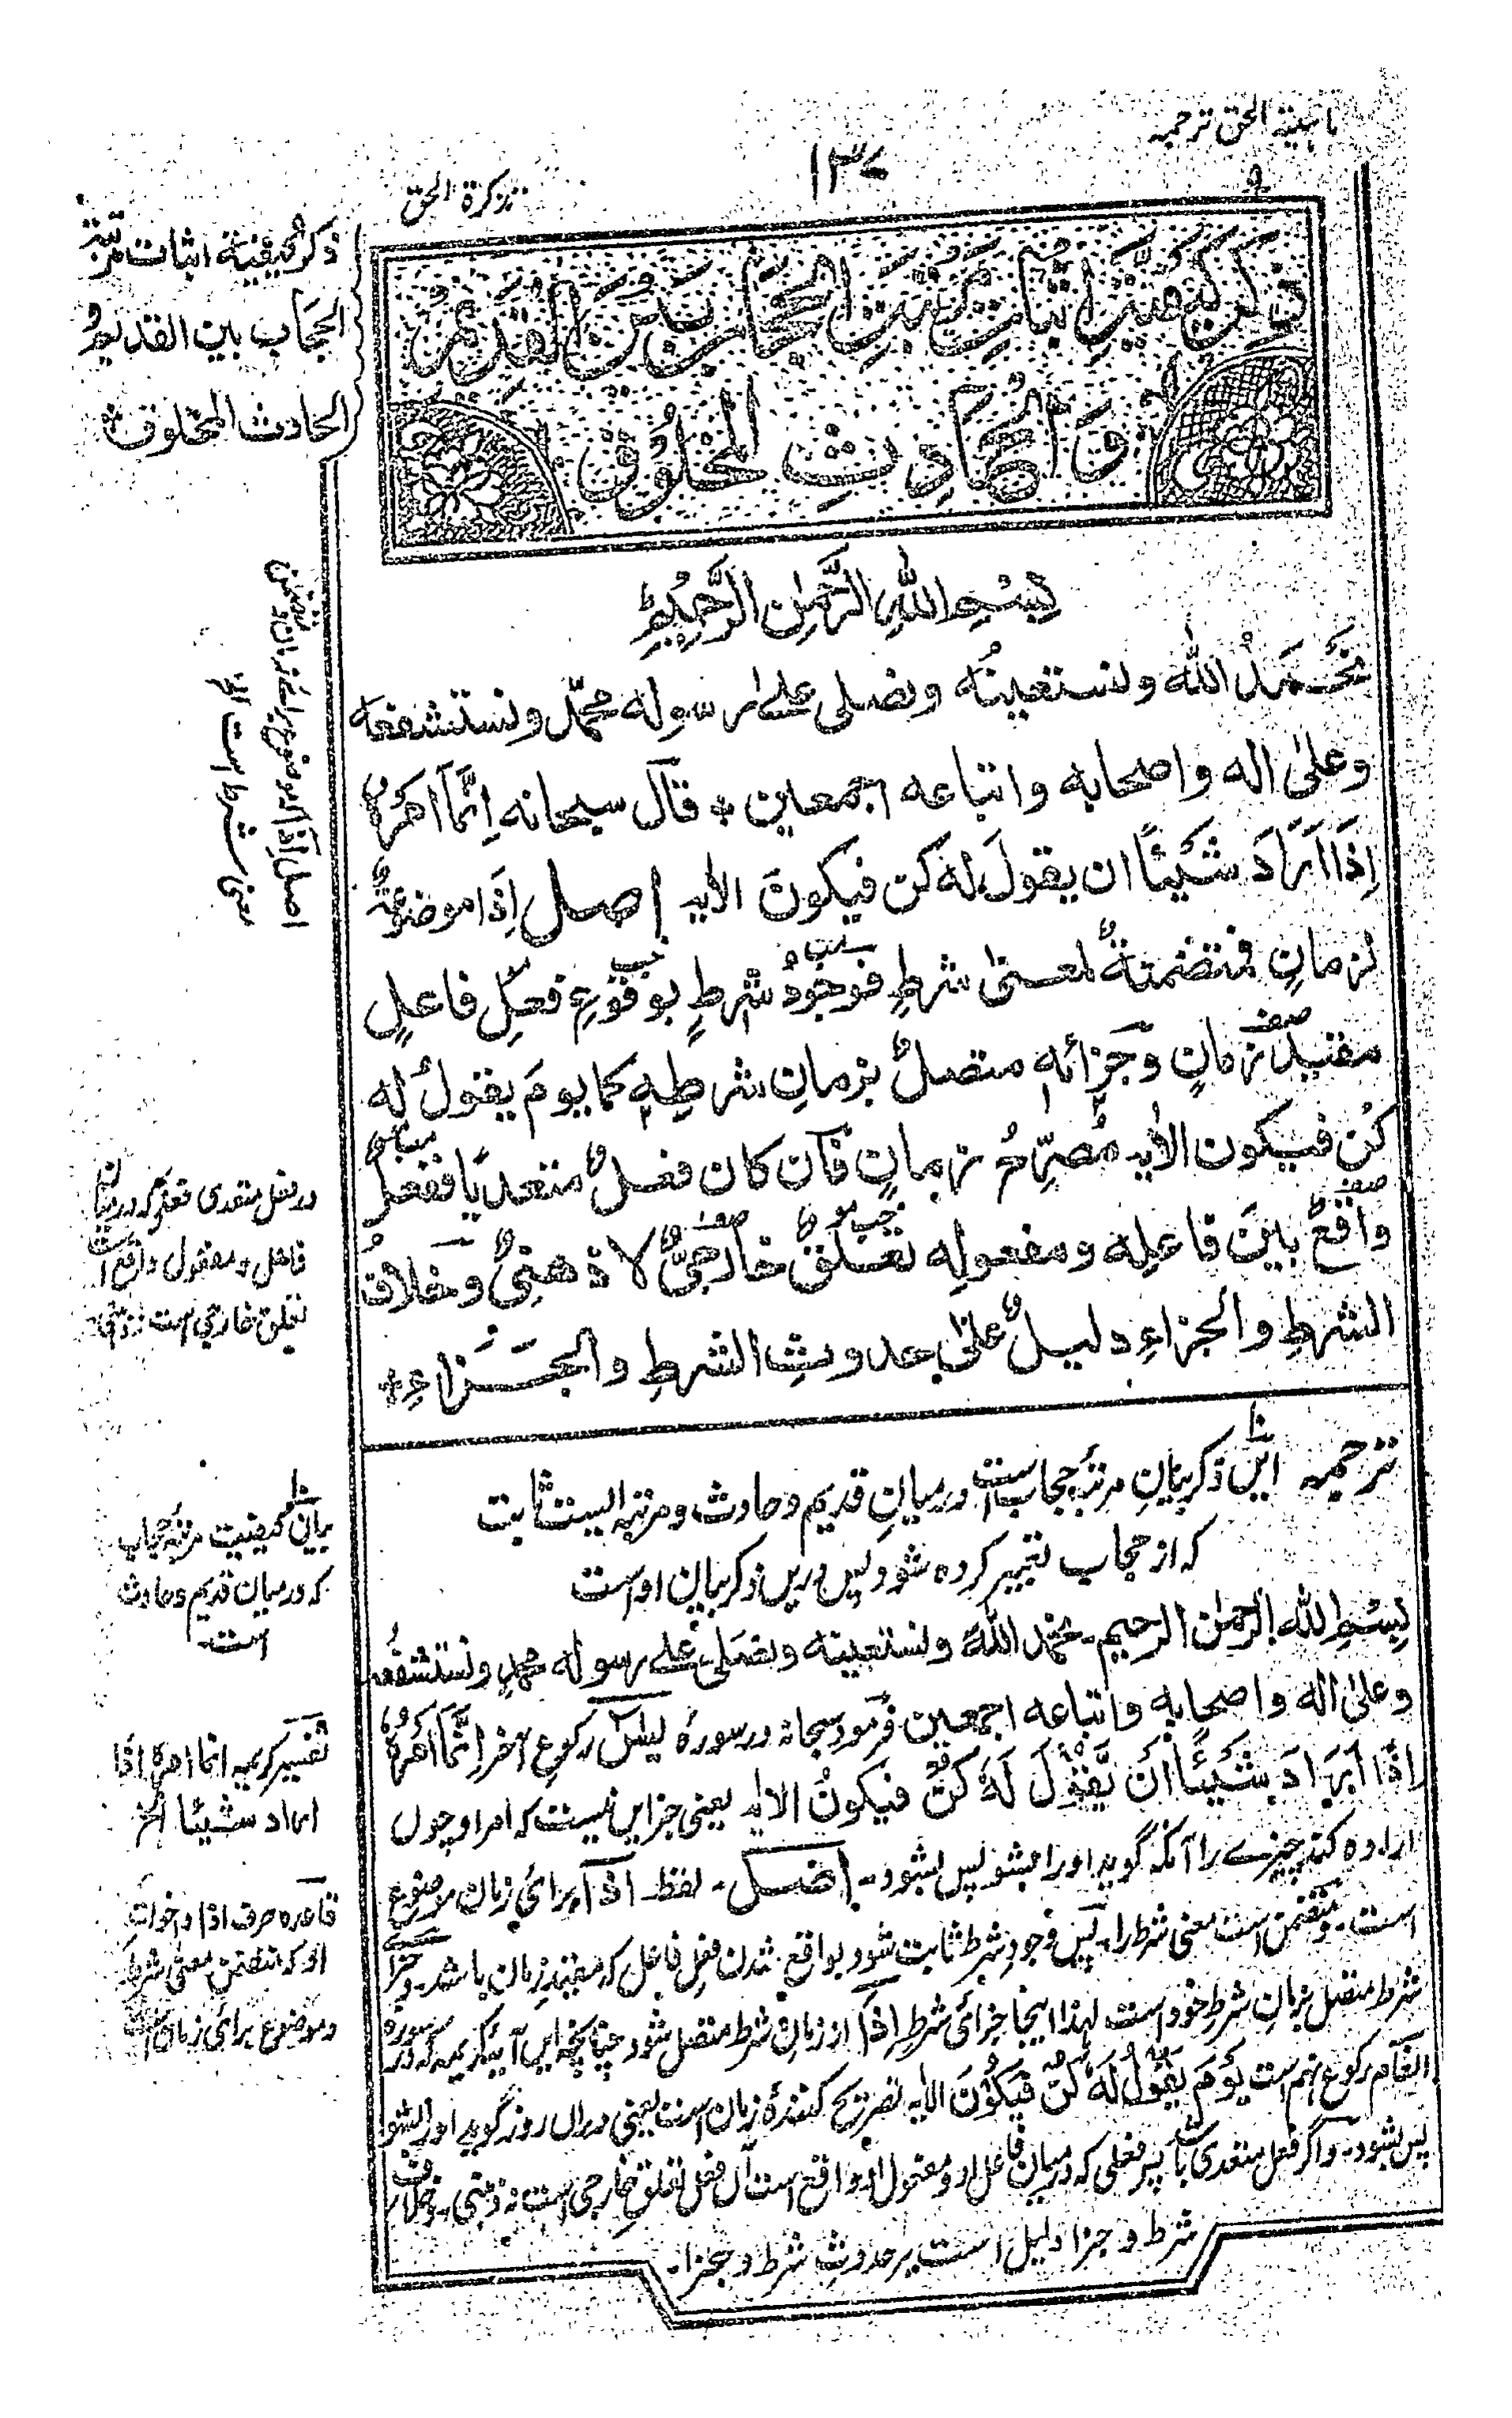 ترجمه
۱۳۷
تذکرة الحق
ذکر کیفیة اثبات مرتبة الحجاب بین القدیم
و الحادث المخلوق
ذکر کیفیة اثبات مرتبة
الحجاب بین القدیم و
الحادث المخلوق
بِسْمِ اللهِ الرَّحْمٰنِ الرَّحِیْمِ
نَحْمَدُ الله ونستعینُه ونصلی علےٰ رسوله محمّد ونستشفعه
وعلیٰ اله واصحابه واتباعه اجمعین * قال سبحانه اِنَّمَآ اَمْرُهٗ
اِذَآ اَرَادَ شَیْئًا ان یقولَ له کن فیکونَ الایه اصل اِذَا موضوعةٌ
لزمانٍ متضمنةٌ لمعنیٰ شرطٍ فوجودُ شرطٍ بوقوعِ فعلِ فاعلٍ
مقیدِ زمانٍ وجزائهٖ متصلٌ بزمانِ شرطِهٖ کما یومَ یقولُ له
کُن فیکون الایه مُصرِّحُ زمانٍ فآن کان فعلٌ متعدیًا ففعلٌ
واقعٌ بینَ فاعِلِه ومفعولِه تعلّقٌ خارجیٌّ لا ذهنیٌّ وخلافُ
الشرطِ والجزاءِ دلیلٌ علیٰ حدوثِ الشرطِ والجَزاءِ*
اصل اِذَا که موضوع برائے زمان است متضمن
معنی شرط است الخ
در فعل متعدی فعلی که درمیان
فاعل و مفعول واقع است
تعلق خارجی است نه ذهنی
ترجمه این ذکر بیانِ مرتبۂ حجاب است درمیانِ قدیم و حادث و مرتبه ایست ثابت
که از حجاب تعبیر کرده شود پس درین ذکر بیان اوست
بِسْمِ الله الرحمٰن الرحیم۔ نحمد اللهَ ونستعینه ونصَلی علے رسوله محمدٍ ونستشفعُه
وعلیٰ اله واصحابه واتباعه اجمعین فرمود سبحانه در سورۂ یٰسٓ رکوع آخر اِنَّمَآ اَمْرُهٗ
اِذَآ اَرَادَ شَیْئًا اَنْ یَّقُوْلَ لَهٗ کُنْ فَیَکُوْنُ الایه یعنی جز این نیست که امر او چون
اراده کند چیزے را آنکه گوید او را بشو پس بشود۔ اصل۔ لفظ اذا برائے زمان موضوع
است۔ ومتضمن است معنی شرط را۔ پس وجودِ شرط ثابت شود بواقع شدن فعلِ فاعل که مقیدِ زمان باشد۔ وجزآ
شرط متصل بزمانِ شرطِ خود است لهٰذا اینجا جزائی شرطِ اذا از زمانِ شرط متصل شود چنانچه این آیۂ کریمه که در سوره
انعام رکوع نهم است یَوْمَ یَقُوْلُ لَهٗ کُنْ فَیَکُوْنَ الایه تصریح کنندۂ زمان است یعنی دران روز گوید او را بشو
پس بشود۔ و اگر فعل متعدی باشد پس فعلی که درمیانِ فاعلِ او و مفعول او واقع است آن فعل تعلقِ خارجی است نه ذهنی۔ وخلاف
شرط و جزا دلیل است بر حدوثِ شرط و جزا۔
بیان کیفیت مرتبۂ حجاب
که درمیان قدیم و حادث
است۔
تفسیر کریمه انما امره اذا
اراد شیئا الخ
قاعده حرف اذا و اخوات
او که متضمن معنی شرط
و موضوع برائی زمان است